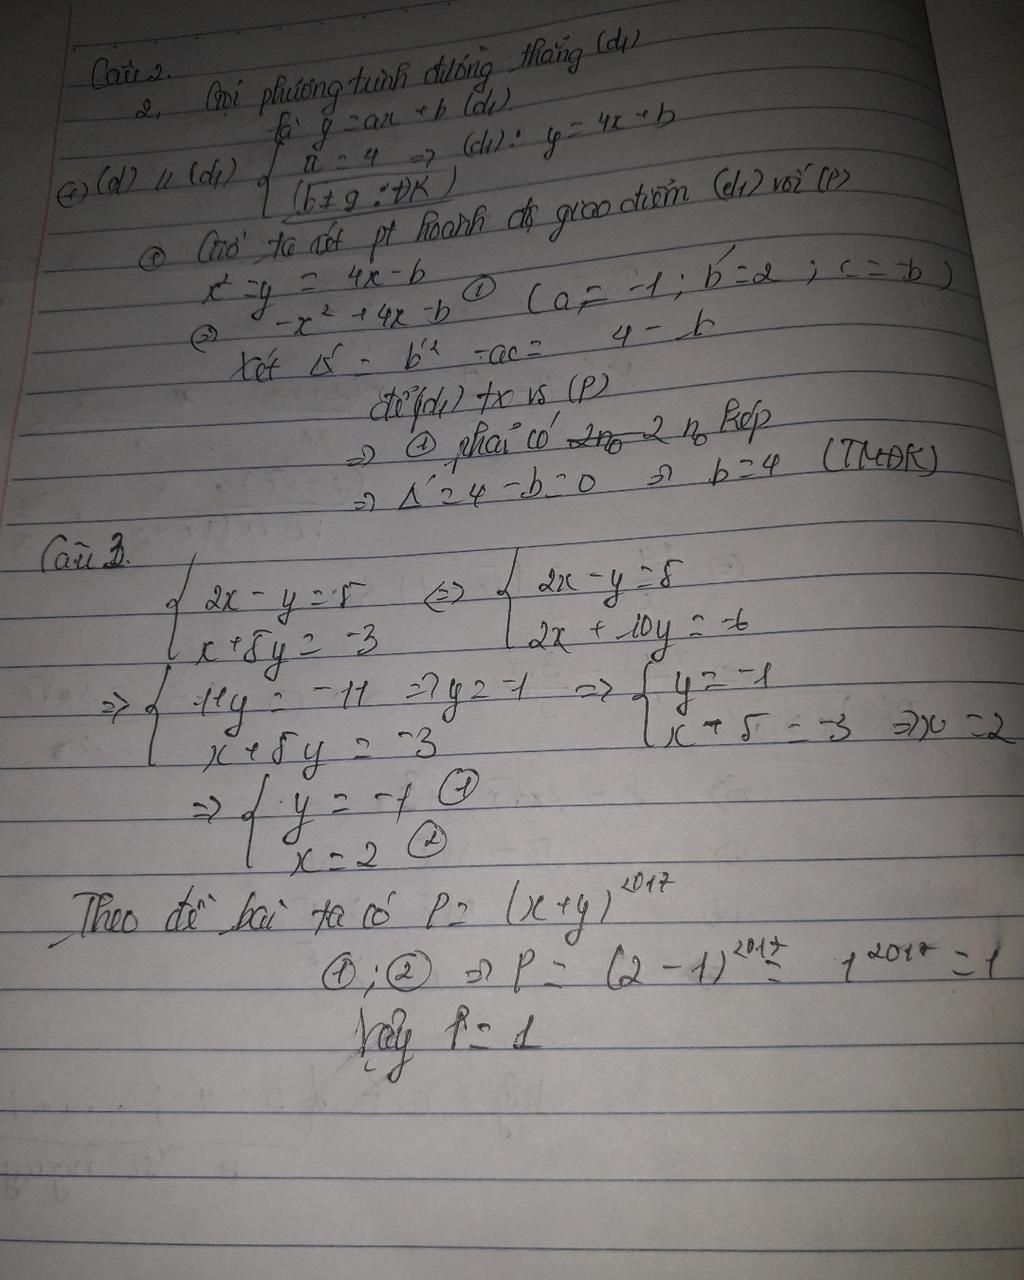 Câu 2.
2, Gọi phương trình đường thẳng (d1)
là y = ax + b (d1)
+) (d) // (d1) { a = 4 => (d1): y = 4x + b
(b ≠ 9 : ĐK)
+ Cho ta xét pt hoành độ giao điểm (d1) với (P)
x² = y = 4x - b
(=) -x² + 4x - b ① (a = -1 ; b' = 2 ; c = -b)
Xét Δ' = b'² - ac = 4 - b
để (d1) tx vs (P)
=> ① phải có 2 no kép
=> Δ' = 4 - b = 0 => b = 4 (TMĐK)
Câu 3.
{ 2x - y = 5 <=> { 2x - y = 5
x + 5y = -3 2x + 10y = -6
=> { 11y = -11 => y = -1 => { y = -1
x + 5y = -3 x + 5 = -3 => x = 2
=> { y = -1 ①
x = 2 ②
Theo đề bài ta có P = (x+y)²⁰¹⁷
① ; ② => P = (2 - 1)²⁰¹⁷ = 1²⁰¹⁷ = 1
Vậy P = 1